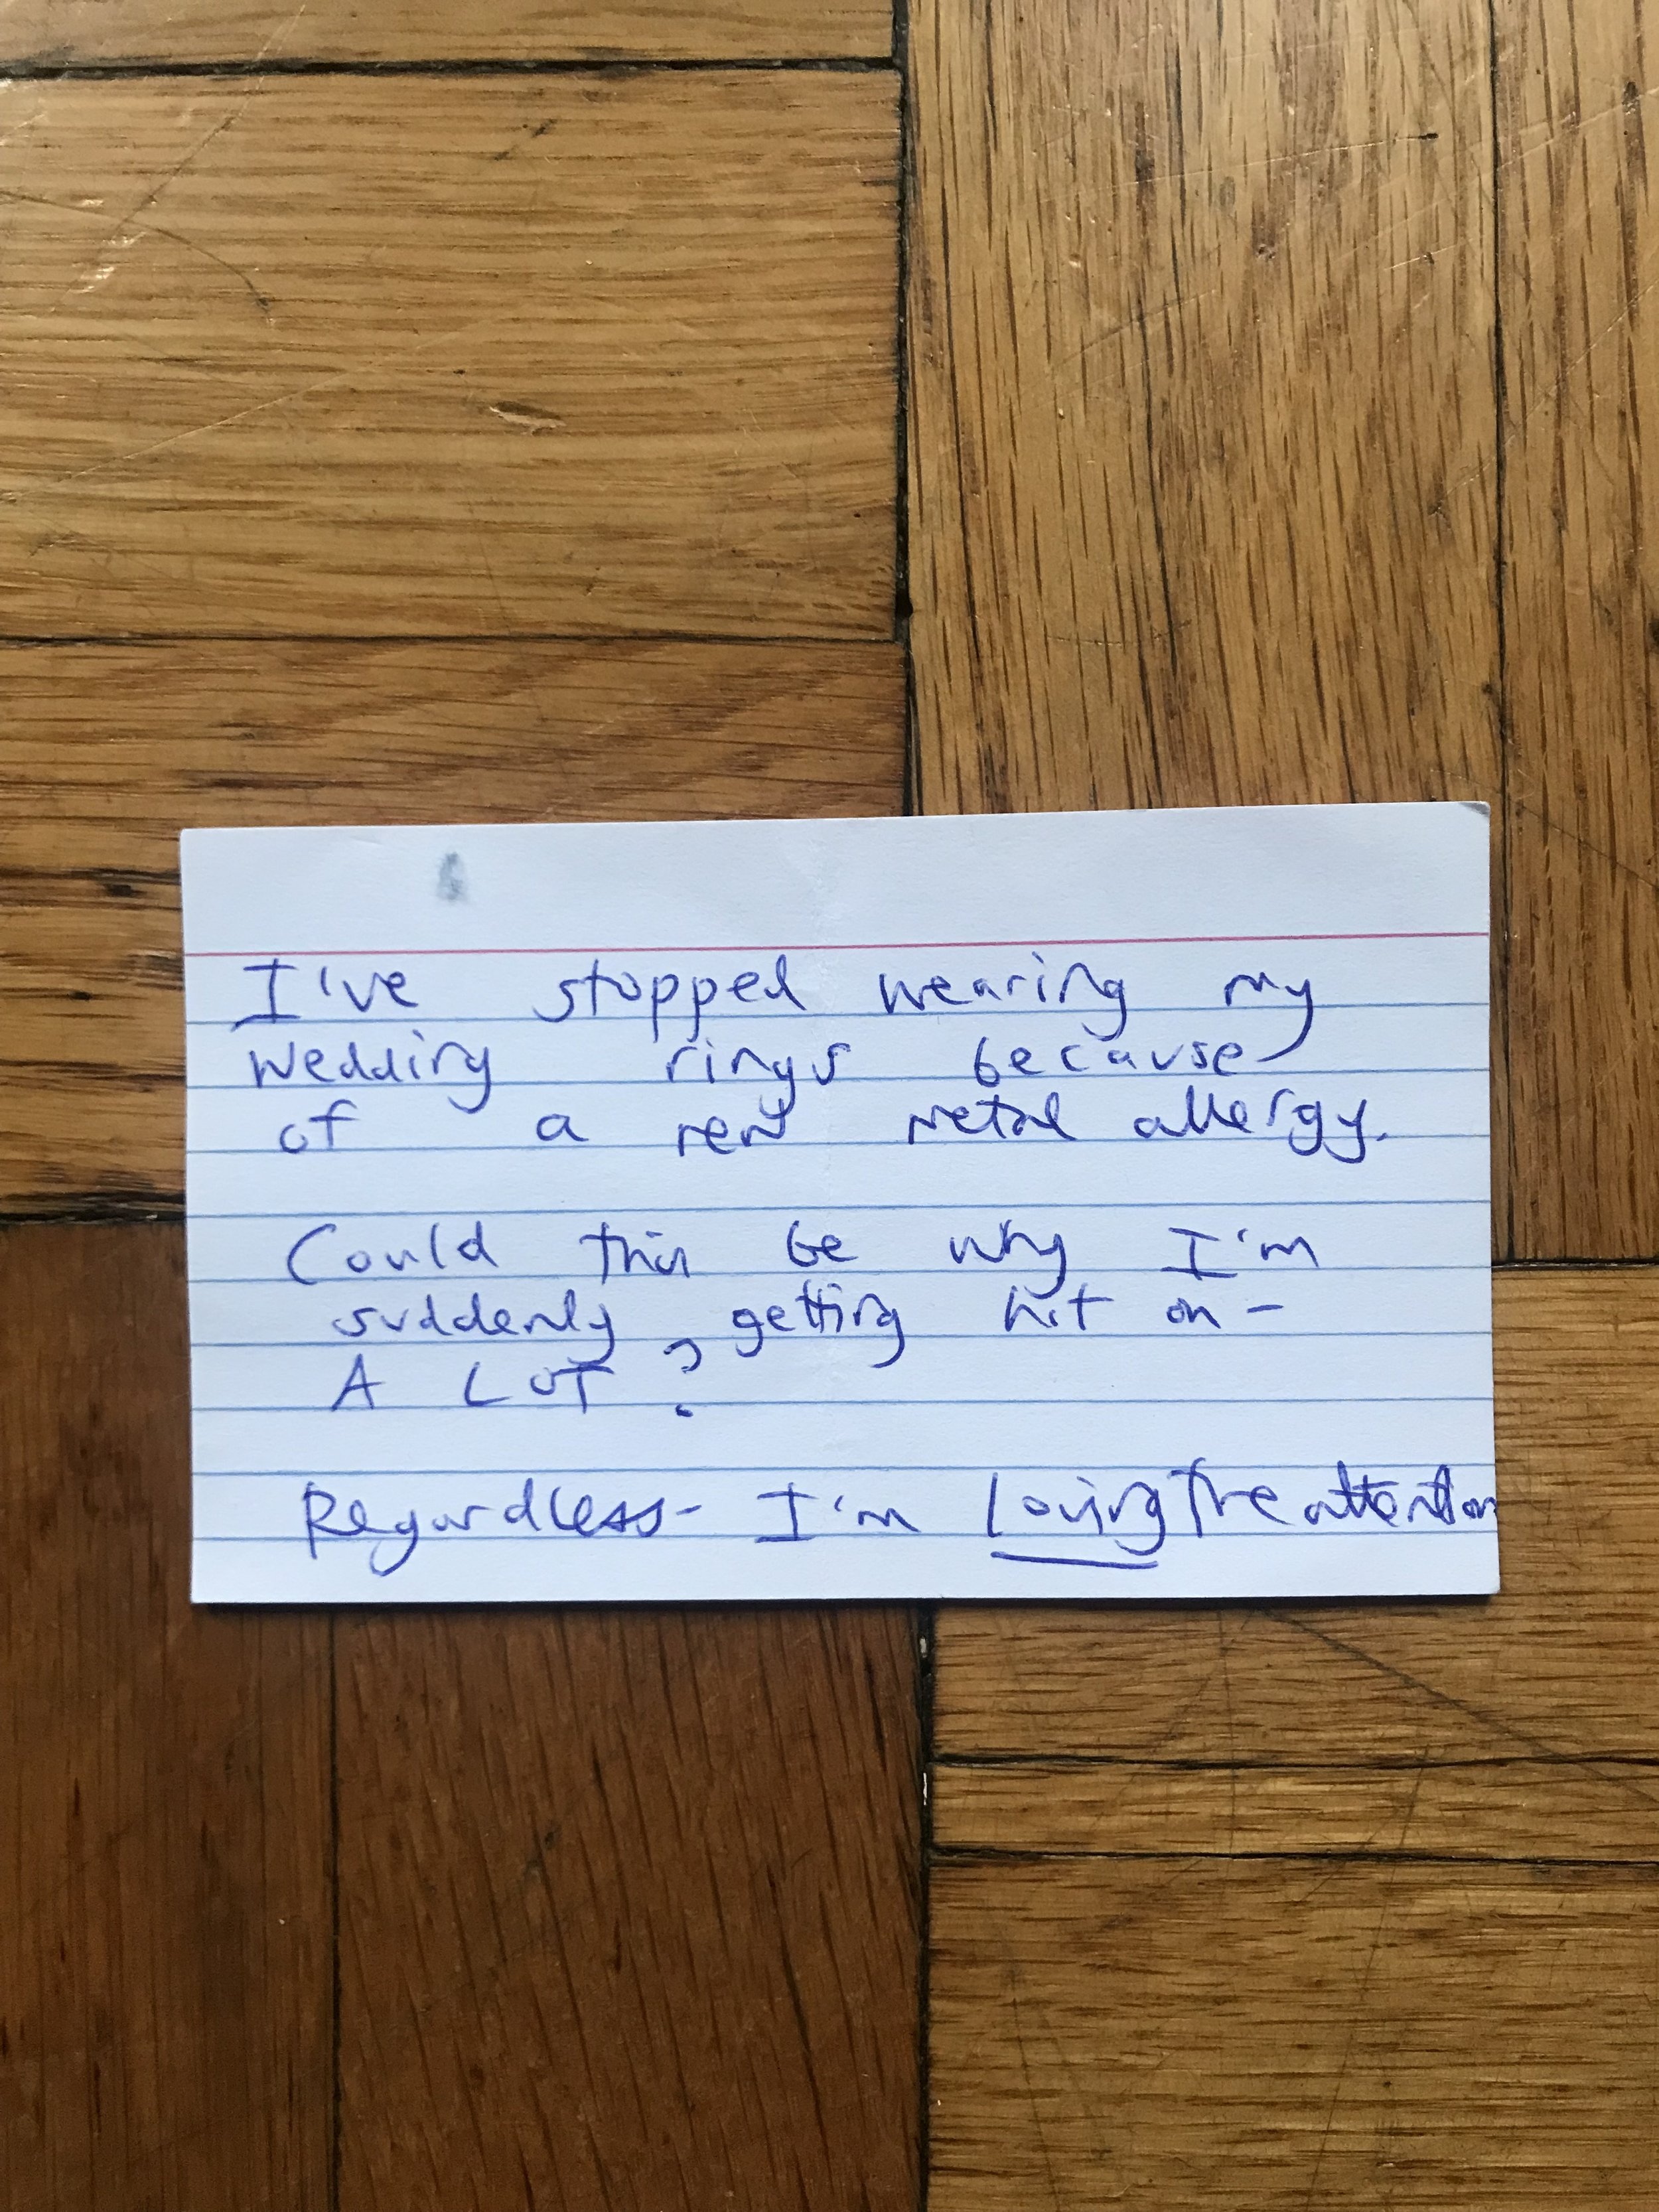 I've stopped wearing my
wedding rings because
of a new metal allergy.
Could this be why I'm
suddenly getting hit on -
A LOT?
Regardless - I'm loving the attention